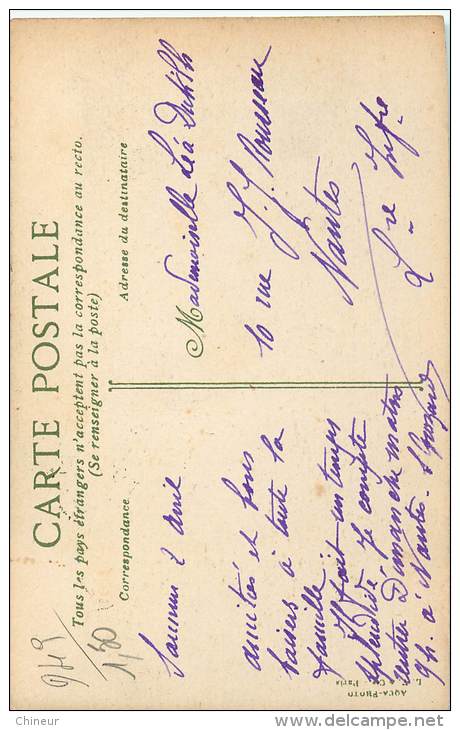 CARTE POSTALE
Tous les pays étrangers n'acceptent pas la correspondance au recto.
(Se renseigner à la poste)
Correspondance
Adresse du destinataire
Saumur 2 avril
amitiés et bons
baisers à toute la
famille
Il fait un temps
splendide je compte
rentrer Dimanche matin
9h. à Nantes.
Mademoiselle Léa
10 rue J. J. Rousseau
Nantes
Lre Infre
943
1,50
AQUA-PHOTO
Paris
Chineur
delcampe.net